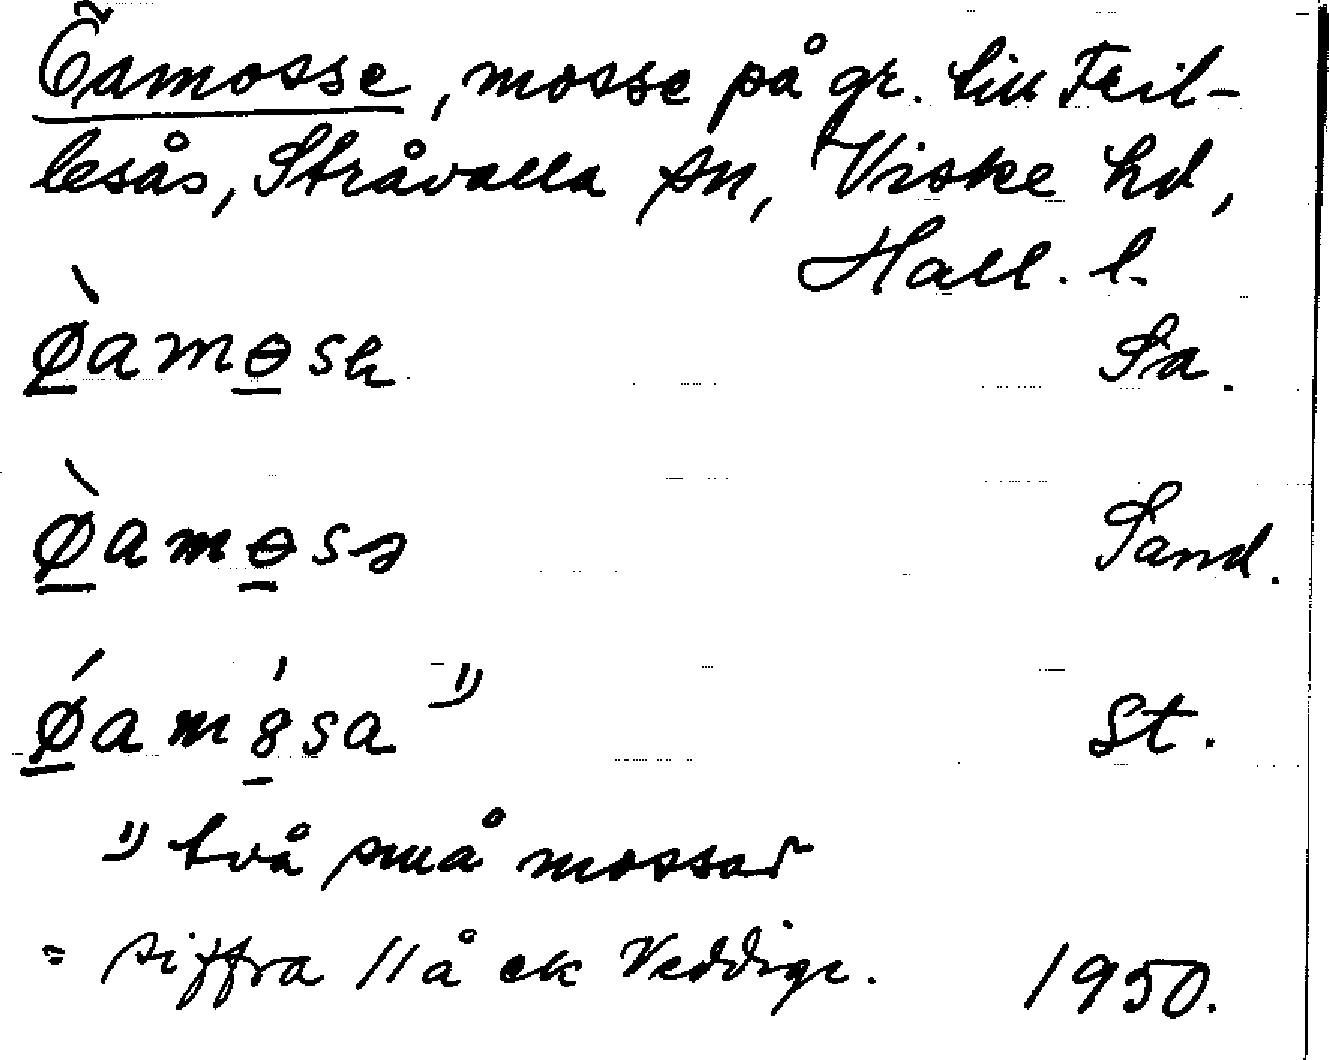 Öamosse, mosse på gr. till Fril-
lesås, Stråvalla sn, Viske hd,
Hall. l.
ø̀amɵsɐ Sa.
ø̀amɵsə Sand.
ǿam8́sa 1) St.
1) två små mossar
= siffra 11 å ek Veddige. 1950.